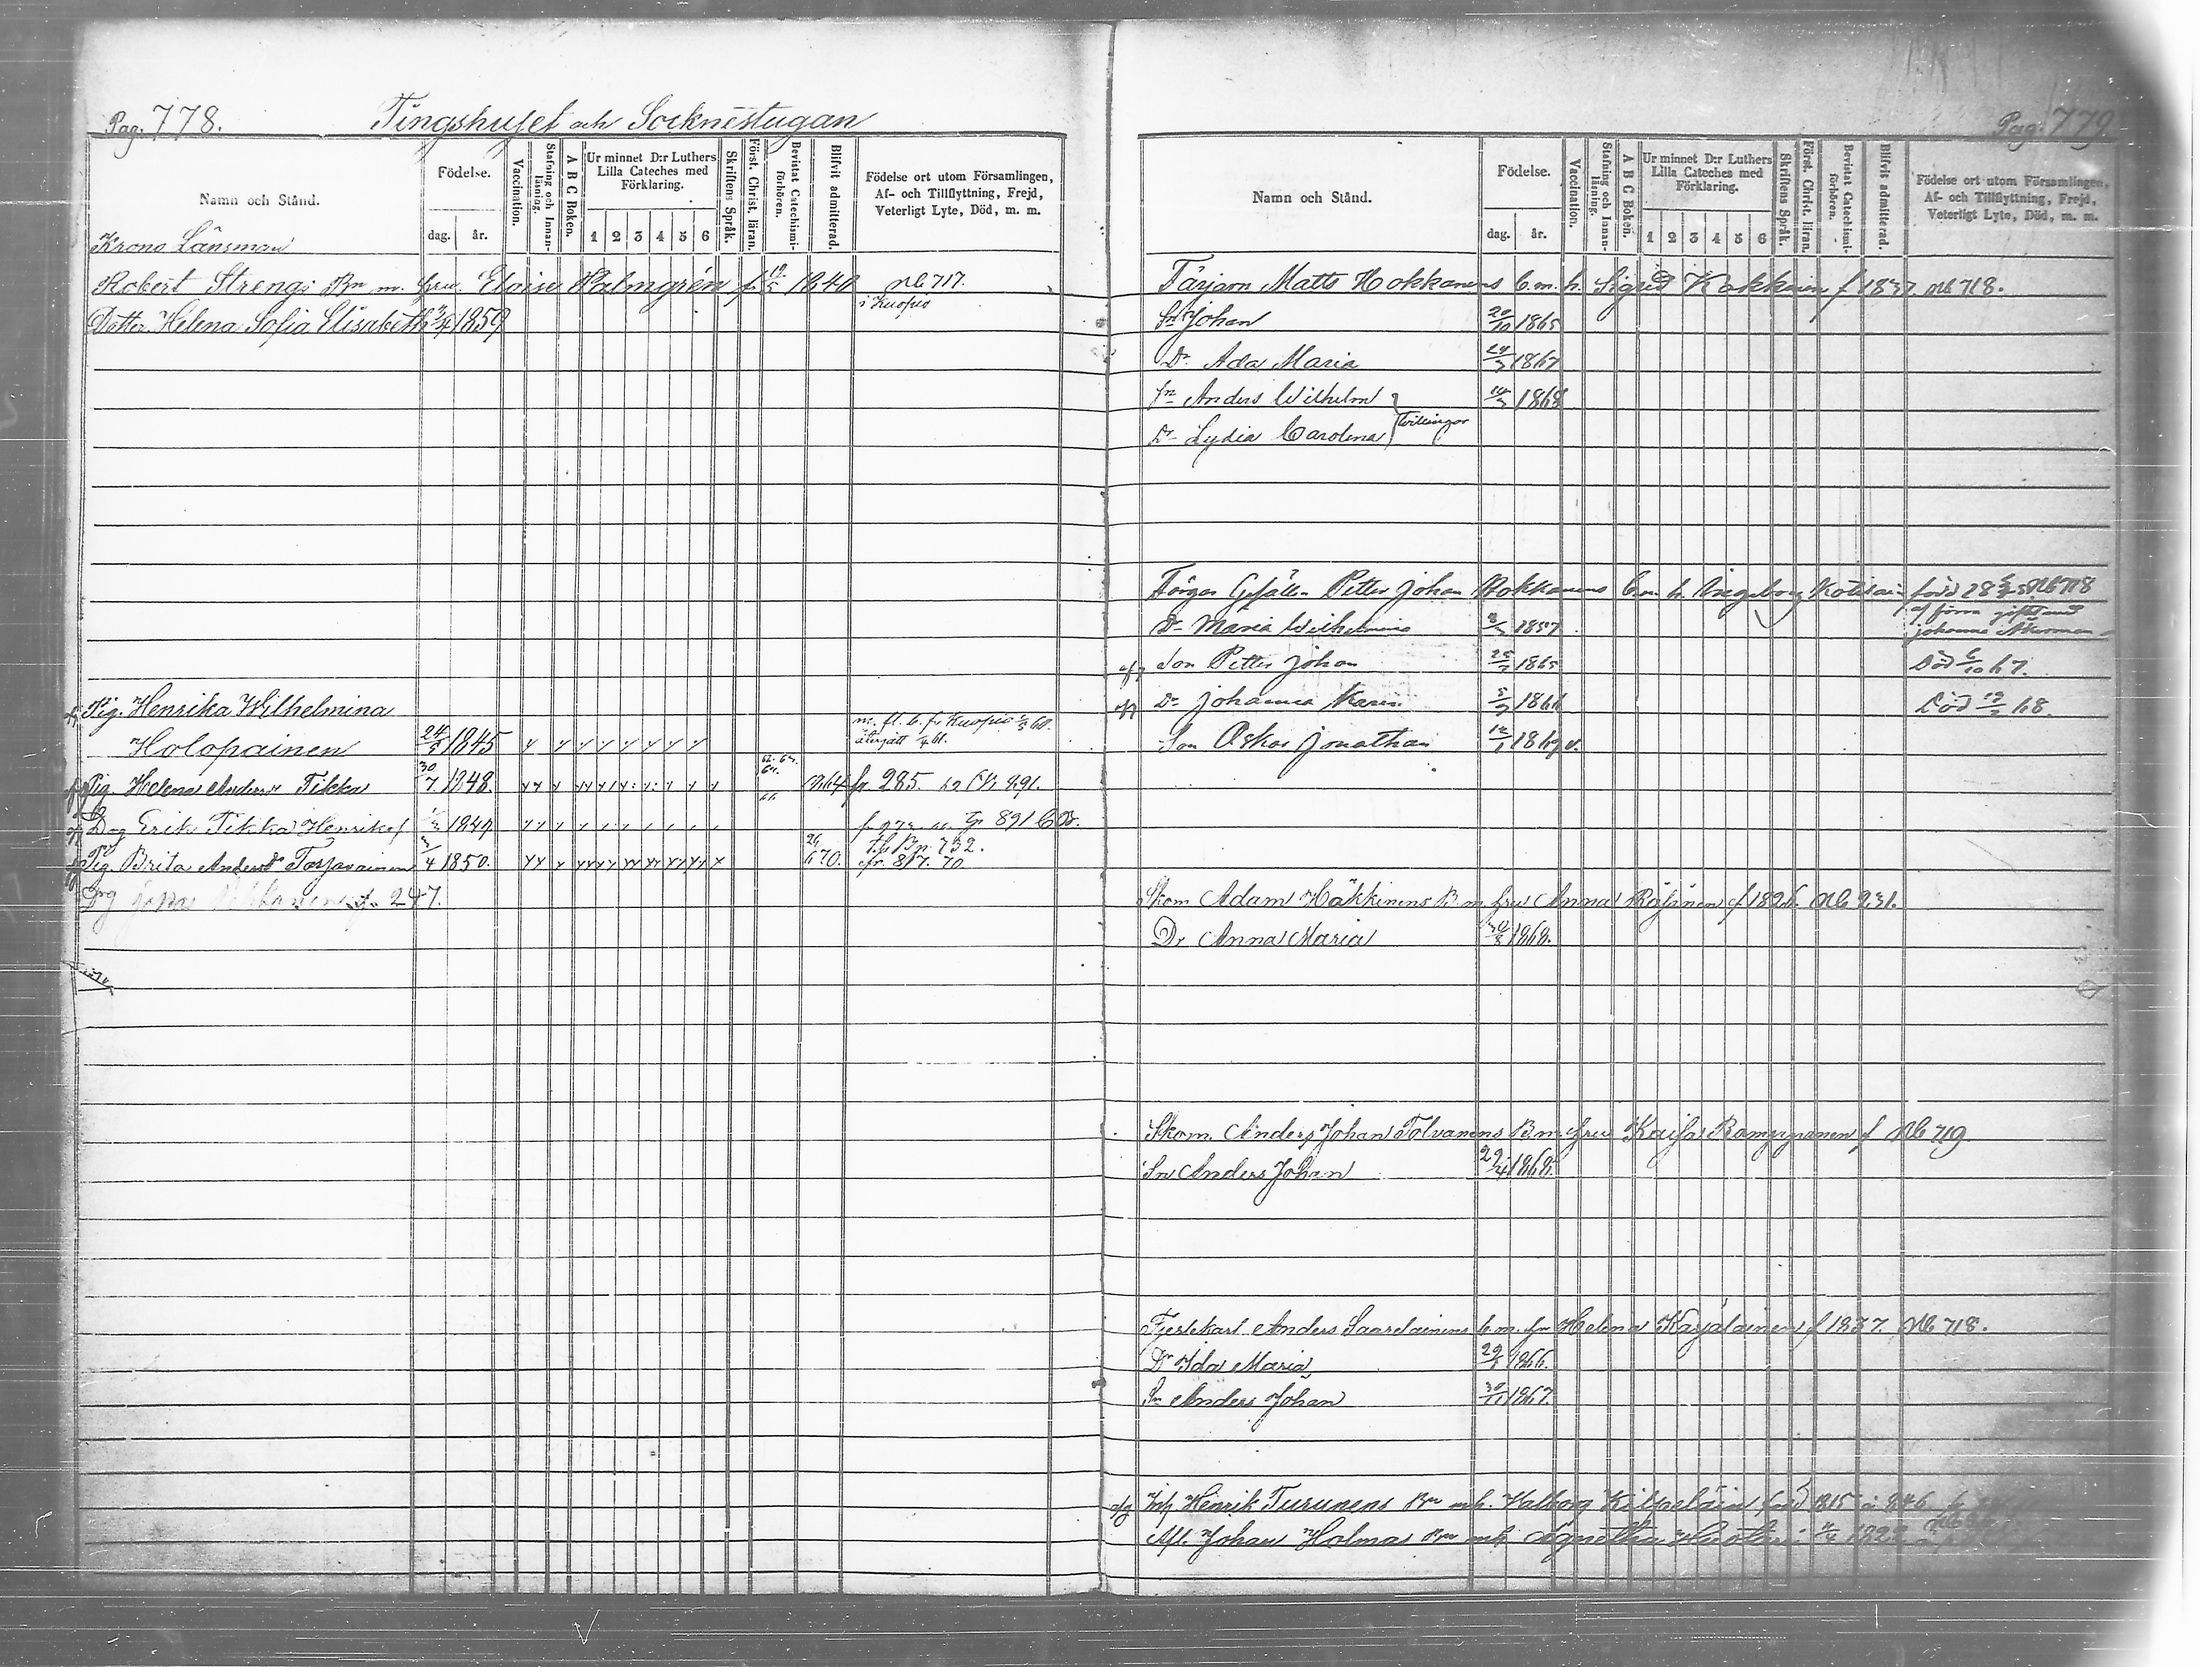 Pag. 778.
Tingshuset och Socknestugan
Namn och Stånd.
Födelse.
dag.
år.
Vaccination.
Stafning och Innanläsning.
A B C Boken.
Ur minnet D:r Luthers Lilla Cateches med Förklaring.
1 2 3 4 5 6
Skriftens Språk.
Först. Christ. läran.
Bevistat Catechismiförhören.
Blifvit admitterad.
Födelse ort utom Församlingen, Af- och Tillflyttning, Frejd, Veterligt Lyte, Död, m. m.
Krono Länsman
Robert Strengs Bn m. fru Eloise Palmgrén f. 1840 Nb 717.
i Kuopio
Dotter Helena Sofia Elisabeth 1859
Pig. Henrika Wilhelmina
Holopainen 24/3 1845
Pig. Helena Anders Tikka 30/7 1848. 285. 891.
Dog Erik Tikka Henriks 891
Pig. Brita Andersd Torjavainen 4 1850. 70. 817. 70
732.
Drg 247.
Pag. 779
Namn och Stånd.
Födelse.
dag.
år.
Vaccination.
Stafning och Innanläsning.
A B C Boken.
Ur minnet D:r Luthers Lilla Cateches med Förklaring.
1 2 3 4 5 6
Skriftens Språk.
Först. Christ. läran.
Bevistat Catechismiförhören.
Blifvit admitterad.
Födelse ort utom Församlingen, Af- och Tillflyttning, Frejd, Veterligt Lyte, Död, m. m.
Färjaon Matts Hokkanens b. m. h. Sigrid Kokkoin f 1837. Nb 718.
Sn Johan 20/10 1865
Dr Ada Maria 1867
Sn Anders Wilhelm 1868
Dr Lydia Carolina Tvillingar
Färgar Gesällen Petter Johan Hokkanens b. m. h. Ingeborg född 28 Nb 718
Dr Maria Wilhelmina 1857
af förra giftet med
Johanna Åkerman
Son Petter Johan 1865 Död 6/10 67.
Dr Johanna Maria 1866 Död 68.
Son Oskar Jonathan 12/1 1869
Skom Adam Häkkinens B m hru Anna Räsänen f 1826. Nb 231.
Dr Anna Maria 1868.
Skom. Anders Johan Tolvanens B m hru Kaisa Romppanen f Nb 719.
Sn Anders Johan 29/4 1868.
Fjerdekarl Anders Saarelainens b. m. hru Helena Karjalainen f 1837. Nb 718.
Dr Ida Maria 1866.
Sn Anders Johan 30/11 1867.
Inh Henrik Turunens Bn mh. Valborg Kilpeläin född 1815 846
Johan Holmas Bn mh Agnetha